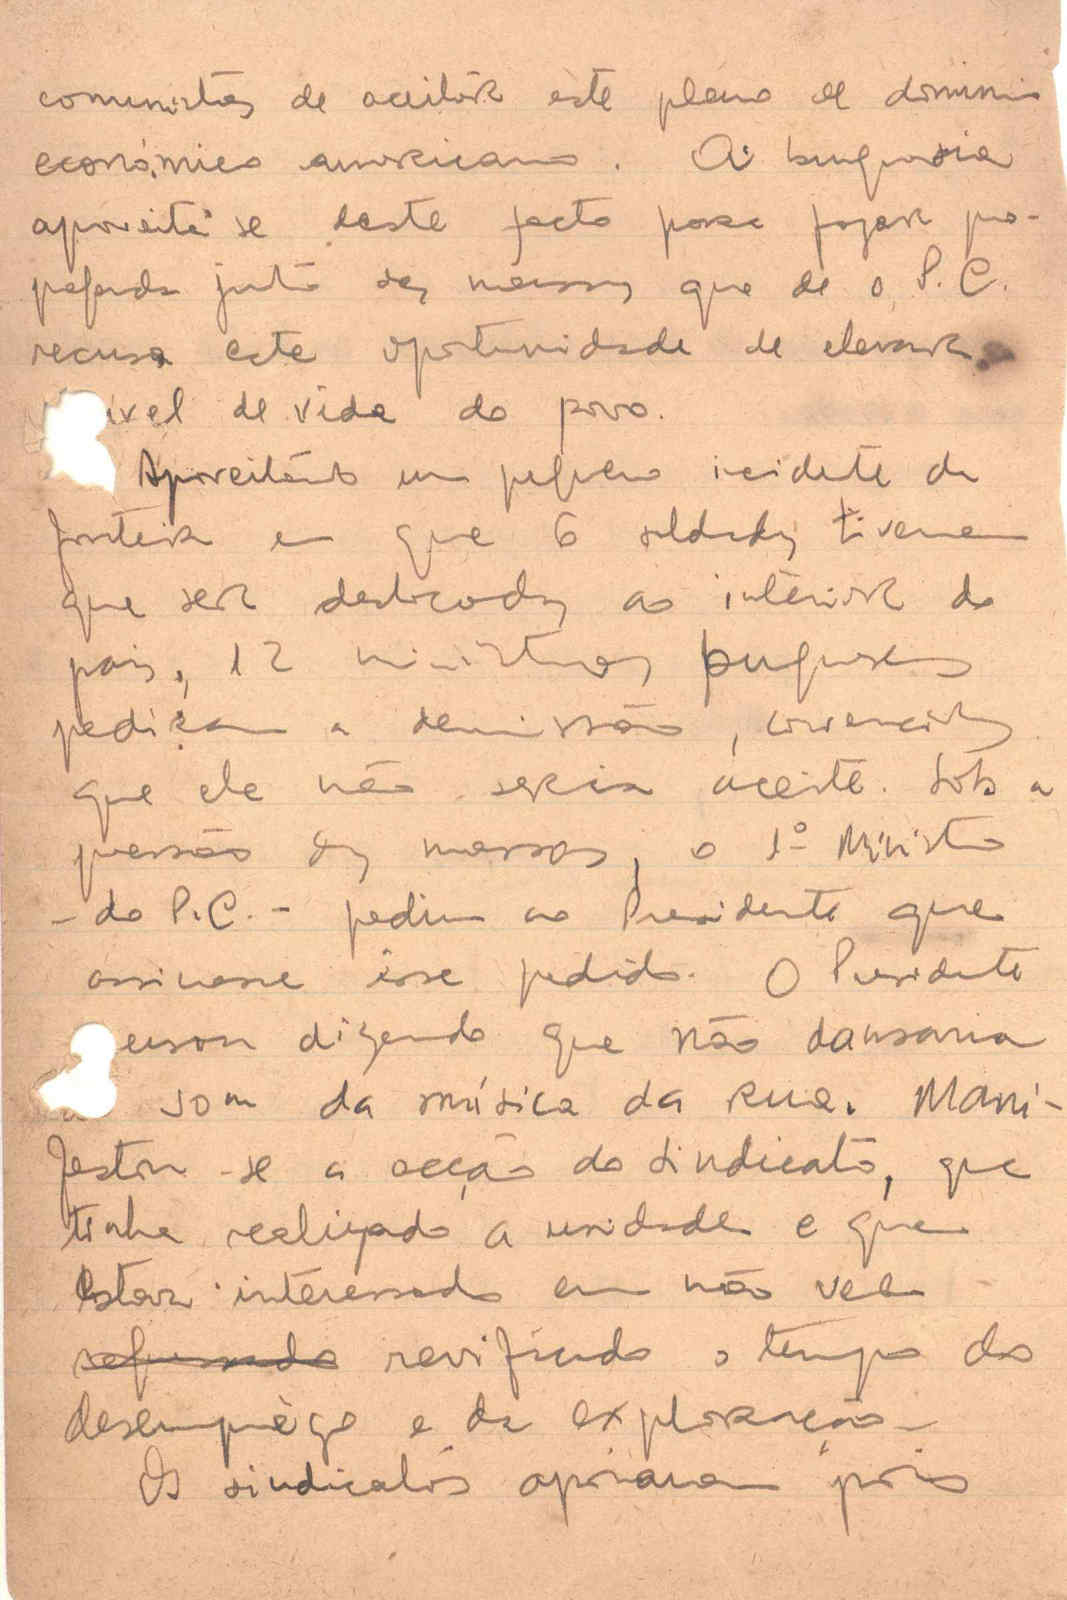 comunistas de aceitar este plano de dominio
económico americano. A burguesia
aproveita se deste facto para fazer pro-
paganda junto das massas que de o P.C.
recusa este oportunidade de elevar
ível de vida do povo.
Aproveitando um pequeno incidente da
fronteira em que 6 soldados tiveram
que ser deslocados ao interior do
pais, 12 ministros burgueses
pediram a demissão, convencidos
que ele não seria aceite. Sob a
pressão das massas, o 1º Ministro
- do P.C. - pediu ao Presidente que
assinasse esse pedido. O Presidente
cusou dizendo que não dansaria
som da música da rua. Mani-
festou-se a acção do sindicato, que
tinha realizado a unidade e que
estava interessado em não ver
revificado o tempo do
desemprêgo e da exploração -
Os sindicatos apoiaram pois